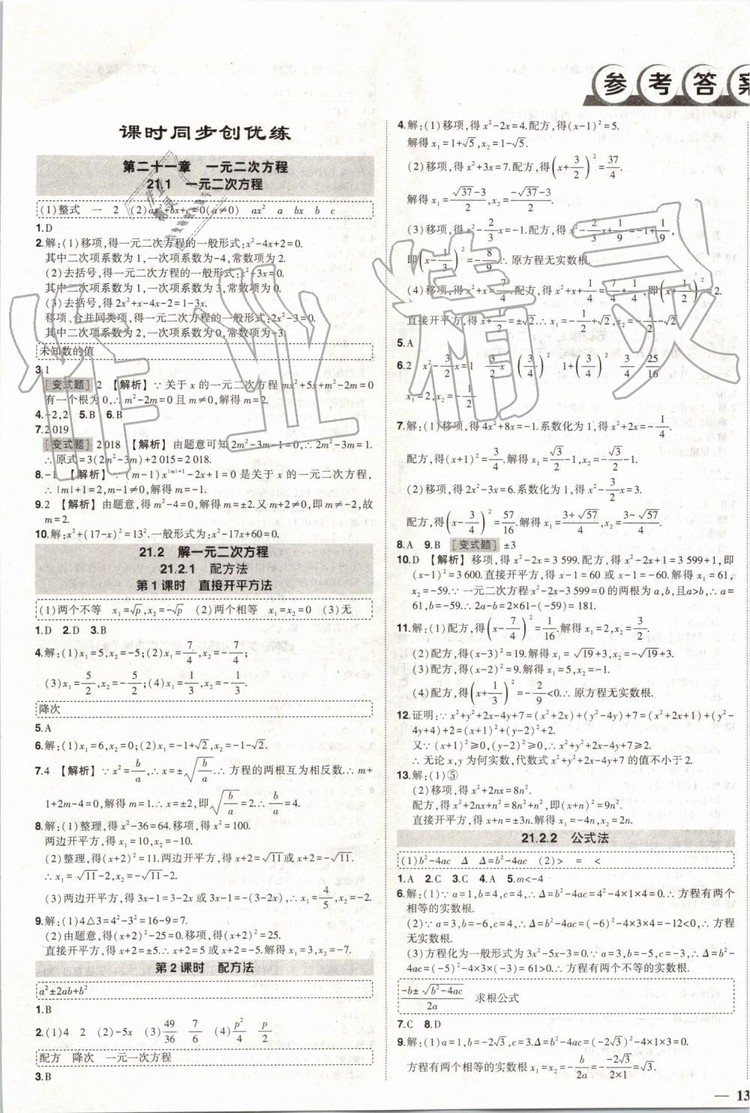 参考答案
课时同步创优练
第二十一章 一元二次方程
21.1 一元二次方程
(1)整式 一 2 (2)ax²+bx+c=0(a≠0) ax² a bx b c
1.D
2.解:(1)移项,得一元二次方程的一般形式:x²-4x+2=0.
其中二次项系数为1,一次项系数为-4,常数项为2.
(2)去括号,得一元二次方程的一般形式:x²-3=0.
其中二次项系数为1,一次项系数为0,常数项为-3.
(3)去括号,得2x²+x-4x-2=1-3x.
移项,合并同类项,得一元二次方程的一般形式:2x²-3=0.
其中二次项系数为2,一次项系数为0,常数项为-3.
未知数的值
3.1
[变式题] 2 【解析】∵关于x的一元二次方程mx²+5x+m²-2m=0
有一个根为0,∴m²-2m=0且m≠0.解得m=2.
4.-2,2 5.B 6.B
7.2 019
[变式题] 2 018 【解析】由题意可知2m²-3m-1=0,∴2m²-3m=1.
∴原式=3(2m²-3m)+2 015=2 018.
8.-1 【解析】∵(m-1)x^|m|+1-2x+1=0是关于x的一元二次方程,
∴|m|+1=2,m-1≠0.解得m=-1.
9.2 【解析】由题意,得m²-4=0,解得m=±2.又m+2≠0,即m≠-2,故
m=2.
10.解:x²+(17-x)²=13².一般形式为:x²-17x+60=0.
21.2 解一元二次方程
21.2.1 配方法
第1课时 直接开平方法
(1)两个不等 x₁=√p,x₂=-√p (2)两个相等 x₁=x₂=0 (3)无
1.D 2.D 3.B
4.解:(1)x₁=5,x₂=-5;(2)x₁=7/4,x₂=-7/4;
(3)x₁=5/2,x₂=-5/2;(4)x₁=1/3,x₂=-1/3.
降次
5.A
6.解:(1)x₁=6,x₂=0;(2)x₁=-1+√2,x₂=-1-√2.
7.4 【解析】∵x²=b/a,∴x=±√(b/a).∴方程的两根互为相反数.∴m+
1+2m-4=0,解得m=1.∴x=±2,即√(b/a)=2.∴b/a=4.
8.解:(1)整理,得x²-36=64.移项,得x²=100.
两边开平方,得x₁=10,x₂=-10.
(2)整理,得(x+2)²=11.两边开平方,得x+2=±√11.
∴x₁=√11-2,x₂=-√11-2.
(3)两边开平方,得3x-1=3-2x或3x-1=2x-3.∴x₁=4/5,x₂=-2.
9.解:(1)4△3=4²-3²=16-9=7.
(2)由题意,得(x+2)²-25=0.移项,得(x+2)²=25.
直接开平方,得x+2=±5.∴x+2=5或x+2=-5.∴x₁=3,x₂=-7.
第2课时 配方法
a²±2ab+b²
1.B
2.(1)4 2 (2)-5x (3)49/36 7/6 (4)p²/4 p/2
配方 降次 一元一次方程
3.B
4.解:(1)移项,得x²-2x=4.配方,得(x-1)²=5.
解得x₁=1+√5,x₂=1-√5.
(2)移项,得x²+3x=7.配方,得(x+3/2)²=37/4.
解得x₁=(√37-3)/2,x₂=(-√37-3)/2.
(3)移项,得x²-2/3x=-1.配方,得x²-2/3x+1/9=-1+1/9,
即(x-1/3)²=-8/9.∴原方程无实数根.
直接开平方,得
5.A
7.解:(1)移项,得4x²+8x=-1.系数化为1,得x²+2x=-1/4.
配方,得(x+1)²=3/4.解得x₁=√3/2-1,x₂=-√3/2-1.
(2)移项,得2x²-3x=6.系数化为1,得x²-3/2x=3.
配方,得(x-3/4)²=57/16.解得x₁=(3+√57)/4,x₂=(3-√57)/4.
8.A 9.B [变式题] ±3
10.D 【解析】移项,得x²-2x=3 599.配方,得x²-2x+1=3 599+1,即
(x-1)²=3 600.直接开平方,得x-1=60或x-1=-60.解得x₁=61,
x₂=-59.∵一元二次方程x²-2x-3 599=0的两根为a,b,且a>b,∴a=
61,b=-59.∴2a-b=2×61-(-59)=181.
11.解:(1)配方,得(x-7/4)²=1/16.解得x₁=2,x₂=3/2.
(2)配方,得(x-3)²=19.解得x₁=√19+3,x₂=-√19+3.
(3)配方,得(x-2)²=9.解得x₁=5,x₂=-1.
(4)配方,得(x+1/3)²=-2/9<0.∴原方程无实数根.
12.证明:∵x²+y²+2x-4y+7=(x²+2x)+(y²-4y)+7=(x²+2x+1)+(y²-
4y+4)+2=(x+1)²+(y-2)²+2.
又∵(x+1)²≥0,(y-2)²≥0,∴(x+1)²+(y-2)²+2≥2.
∴无论x,y为何实数,代数式x²+y²+2x-4y+7的值不小于2.
13.解:(1)⑤
(2)移项,得x²+2nx=8n².
配方,得x²+2nx+n²=8n²+n²,即(x+n)²=9n².
直接开平方,得x+n=±3n.解得x₁=-4n,x₂=2n.
21.2.2 公式法
(1)b²-4ac Δ Δ=b²-4ac (2)> = <
1.A 2.C 3.A 4.A 5.m<-4
6.解:(1)∵a=1,b=4,c=4,∴Δ=b²-4ac=4²-4×1×4=0.∴方程有两个
相等的实数根.
(2)∵a=3,b=-6,c=4,∴Δ=b²-4ac=(-6)²-4×3×4=-12<0.∴方程
无实数根.
(3)方程化为一般形式为3x²-5x-3=0.∵a=3,b=-5,c=-3,∴Δ=b²-
4ac=(-5)²-4×3×(-3)=61>0.∴方程有两个不等的实数根.
(-b±√(b²-4ac))/2a 求根公式
7.C 8.D
9.解:(1)∵a=1,b=-2√3,c=3,∴Δ=b²-4ac=(-2√3)²-4×1×3=0.∴
方程有两个相等的实数根x₁=x₂=-b/2a=-(-2√3)/(2×1)=√3.
13
作业精灵